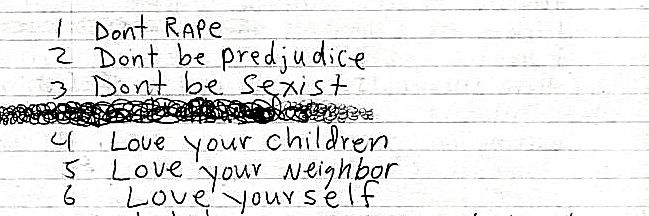 1 Dont RAPe
2 Dont be predjudice
3 Dont be Sexist
4 Love your children
5 Love your Neighbor
6 Love yourself